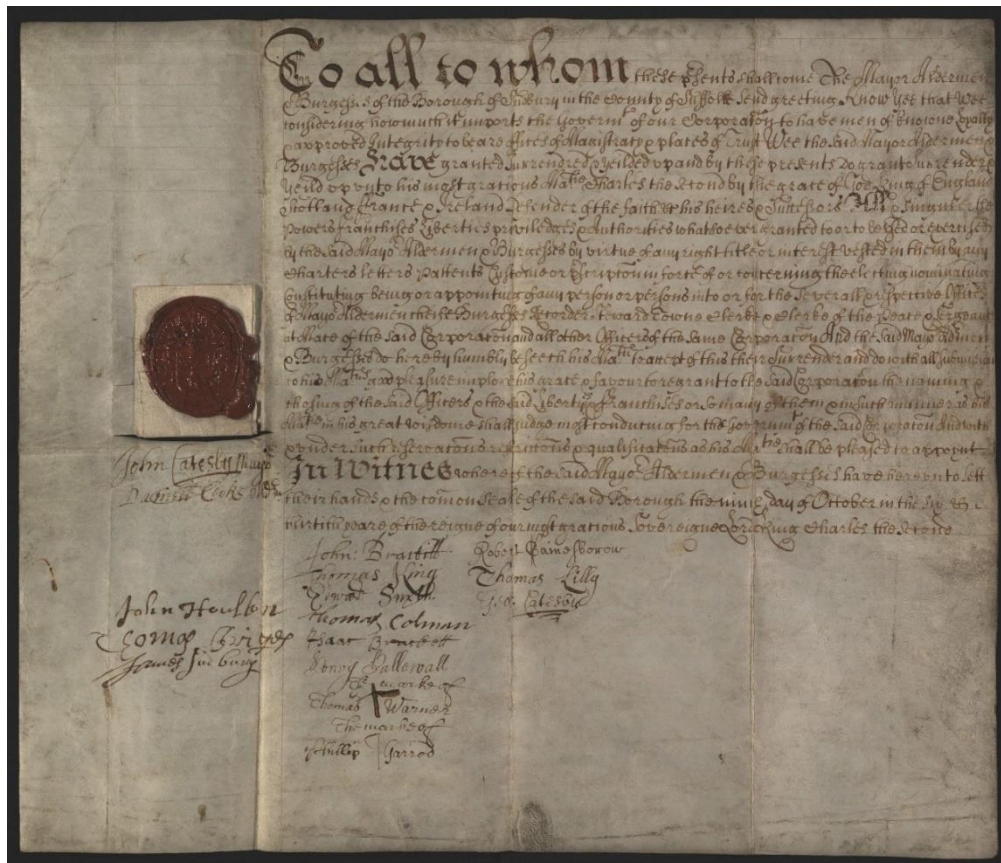 To all to whom these psents shall come The Mayor Aldermen
& Burgesses of the Borough of Sudbury in the County of Suffolk Send greeting Know Yee that Wee
considering how much it imports the Governmt of our Corporacon to have men of knowne Loyalty
& approved Integrity to beare offices of Magistracy & places of Trust Wee the said Mayor Aldermen &
Burgesses Have granted surrendred & yeilded up and by these presents do grant surrender &
yeild up unto his most gracious Matie Charles the second by the grace of God King of England
Scotland France & Ireland defender of the faith &c his heires & Successors All & singuler the
Powers franchises Liberties priviledges & Authorities whatsoever granted to or to be used or exercised
by the said Mayor Aldermen & Burgesses by virtue of any right title or interest vested in them by any
Charters letters Patents Custome or Prscripcon in force of or concerning the electing nominating
Constituting being or appointing of any person or persons into or for the severall & respective Offices
of Mayor Aldermen cheife Burgesses Recorder Steward Towne Clerke & Clerke of the Peace & Sergeants
at Mace of the said Corporacon and all other Officers of the same Corporacon And the said Mayor Aldermen
& Burgesses do hereby humbly beseech his Matie to accept of this their Surrender and do with all submission
to his Maties good pleasure implore his grace & favour to regrant to the said Corporacon the naming &
chosing of the said Officers & the said Liberties & franchises or so many of them & in such manner as his
Matie in his great wisdome shall judge most conducing for the Governmt of the said Corporacon And with
& under such reservacons restriccons & qualificacons as his Matie shall be pleased to appoynt
In Witnes whereof the said Mayor Aldermen & Burgesses have hereunto sett
their hands & the comon Seale of the said Borough the nine day of October in the six &
thirtith yeare of the reigne of our most gracious Sovereigne Lord King Charles the second
John Catesby Mayor
John Brackett
Robert Rainesborow
Thomas King
Thomas Lilly
Smith
Geo: Catesbie
Thomas Colman
Isaac Brackett
The marke of
Thomas Warner
The marke of
Phillip Garrod
John
Thomas
James Sudbury